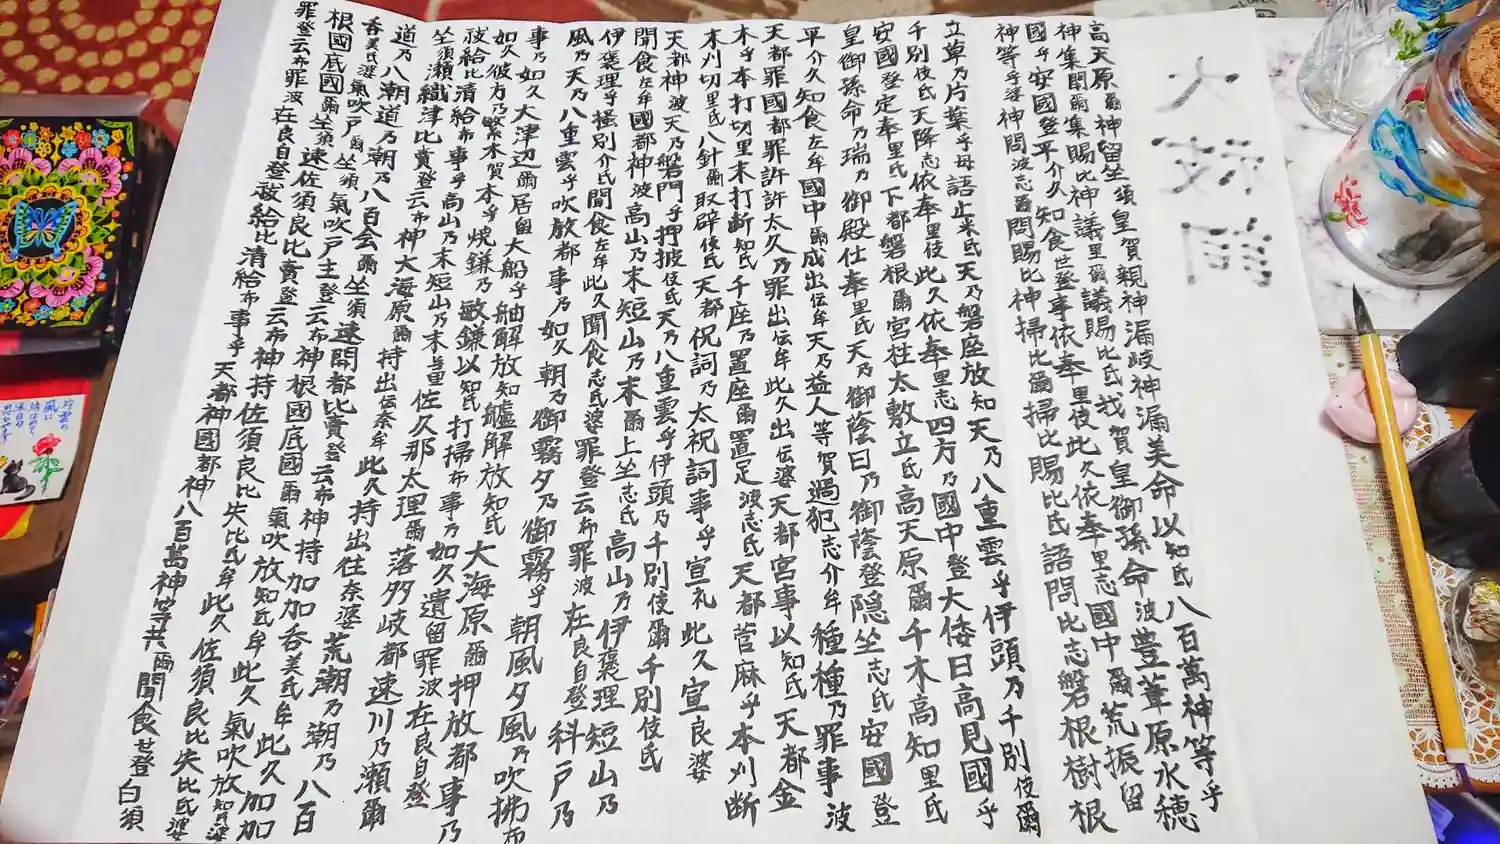 大祓詞
高天原爾神留坐須皇賀親神漏岐神漏美命以知氐八百萬神等乎
神集閇爾集賜比神議里爾議賜比氐我賀皇御孫命波豊葦原水穂
國乎安國登平介久知食世登事依奉里伎此久依奉里志國中爾荒振留
神等乎婆神問波志爾問賜比神掃比爾掃比賜比氐語問比志磐根樹根
立草乃片葉乎母語止米氐天乃磐座放知天乃八重雲乎伊頭乃千別伎爾
千別伎氐天降志依奉里伎此久依奉里志四方乃國中登大倭日高見國乎
安國登定奉里氐下都磐根爾宮柱太敷立氐高天原爾千木高知里氐
皇御孫命乃瑞乃御殿仕奉里氐天乃御蔭日乃御蔭登隠坐志氐安國登
平介久知食左牟國中爾成出伝牟天乃益人等賀過犯志介牟種種乃罪事波
天都罪國都罪許許太久乃罪出伝牟此久出伝婆天都宮事以知氐天都金
木乎本打切里末打断知氐千座乃置座爾置足波志氐天都菅麻乎本刈断
末刈切里氐八針爾取辟伎氐天都祝詞乃太祝詞事乎宣礼此久宣良婆
天都神波天乃磐門乎押披伎氐天乃八重雲乎伊頭乃千別伎爾千別伎氐
聞食左牟國都神波高山乃末短山乃末爾上坐志氐高山乃伊褒理短山乃
伊褒理乎掻別介氐聞食左牟此久聞食志氐婆罪登云布罪波在良自登科戸乃
風乃天乃八重雲乎吹放都事乃如久朝乃御霧夕乃御霧乎朝風夕風乃吹拂布
事乃如久大津辺爾居留大船乎舳解放知艫解放知氐大海原爾押放都事乃
如久彼方乃繁木賀本乎焼鎌乃敏鎌以知氐打掃布事乃如久遺留罪波在良自登
祓給比清給布事乎高山乃末短山乃末与里佐久那太理爾落多岐都速川乃瀬爾
坐須瀬織津比賣登云布神大海原爾持出伝奈牟此久持出往奈婆荒潮乃潮乃八百
道乃八潮道乃潮乃八百会爾坐須速開都比賣登云布神持加加呑美氐牟此久加加
呑美氐婆氣吹戸爾坐須氣吹戸主登云布神根國底國爾氣吹放知氐牟此久氣吹放知氐婆
根國底國爾坐須速佐須良比賣登云布神持佐須良比失比氐牟此久佐須良比失比氐婆
罪登云布罪波在良自登祓給比清給布事乎天都神國都神八百萬神等共爾聞食世登白須